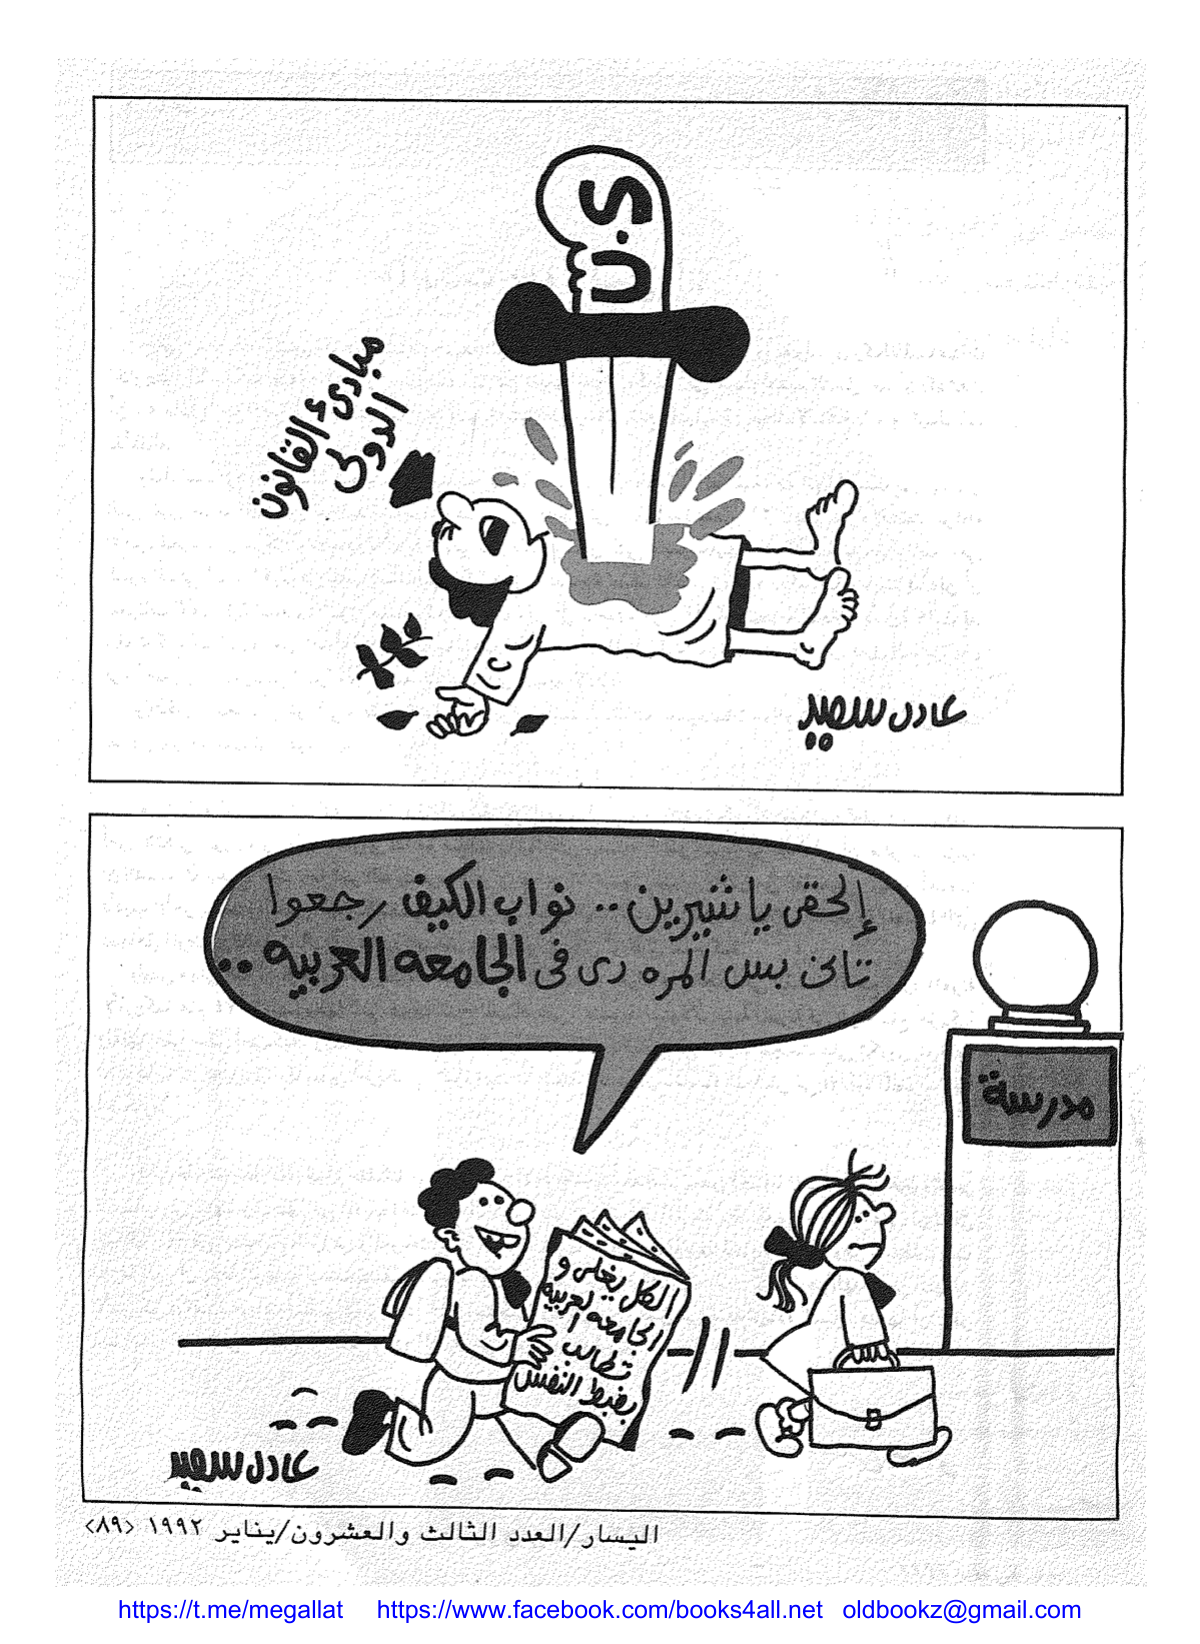 U.S
مبادئ القانون
الدولى
عادل سعيد
إلحقى يا شيرين .. نواب الكيف رجعوا
تانى بس المره دى فى الجامعه العربيه ..
مدرسة
الكل يغلى و
الجامعه العربيه
تطالب
بضبط النفس
عادل سعيد
اليسار/العدد الثالث والعشرون/يناير ١٩٩٢ <٨٩>
https://t.me/megallat https://www.facebook.com/books4all.net oldbookz@gmail.com